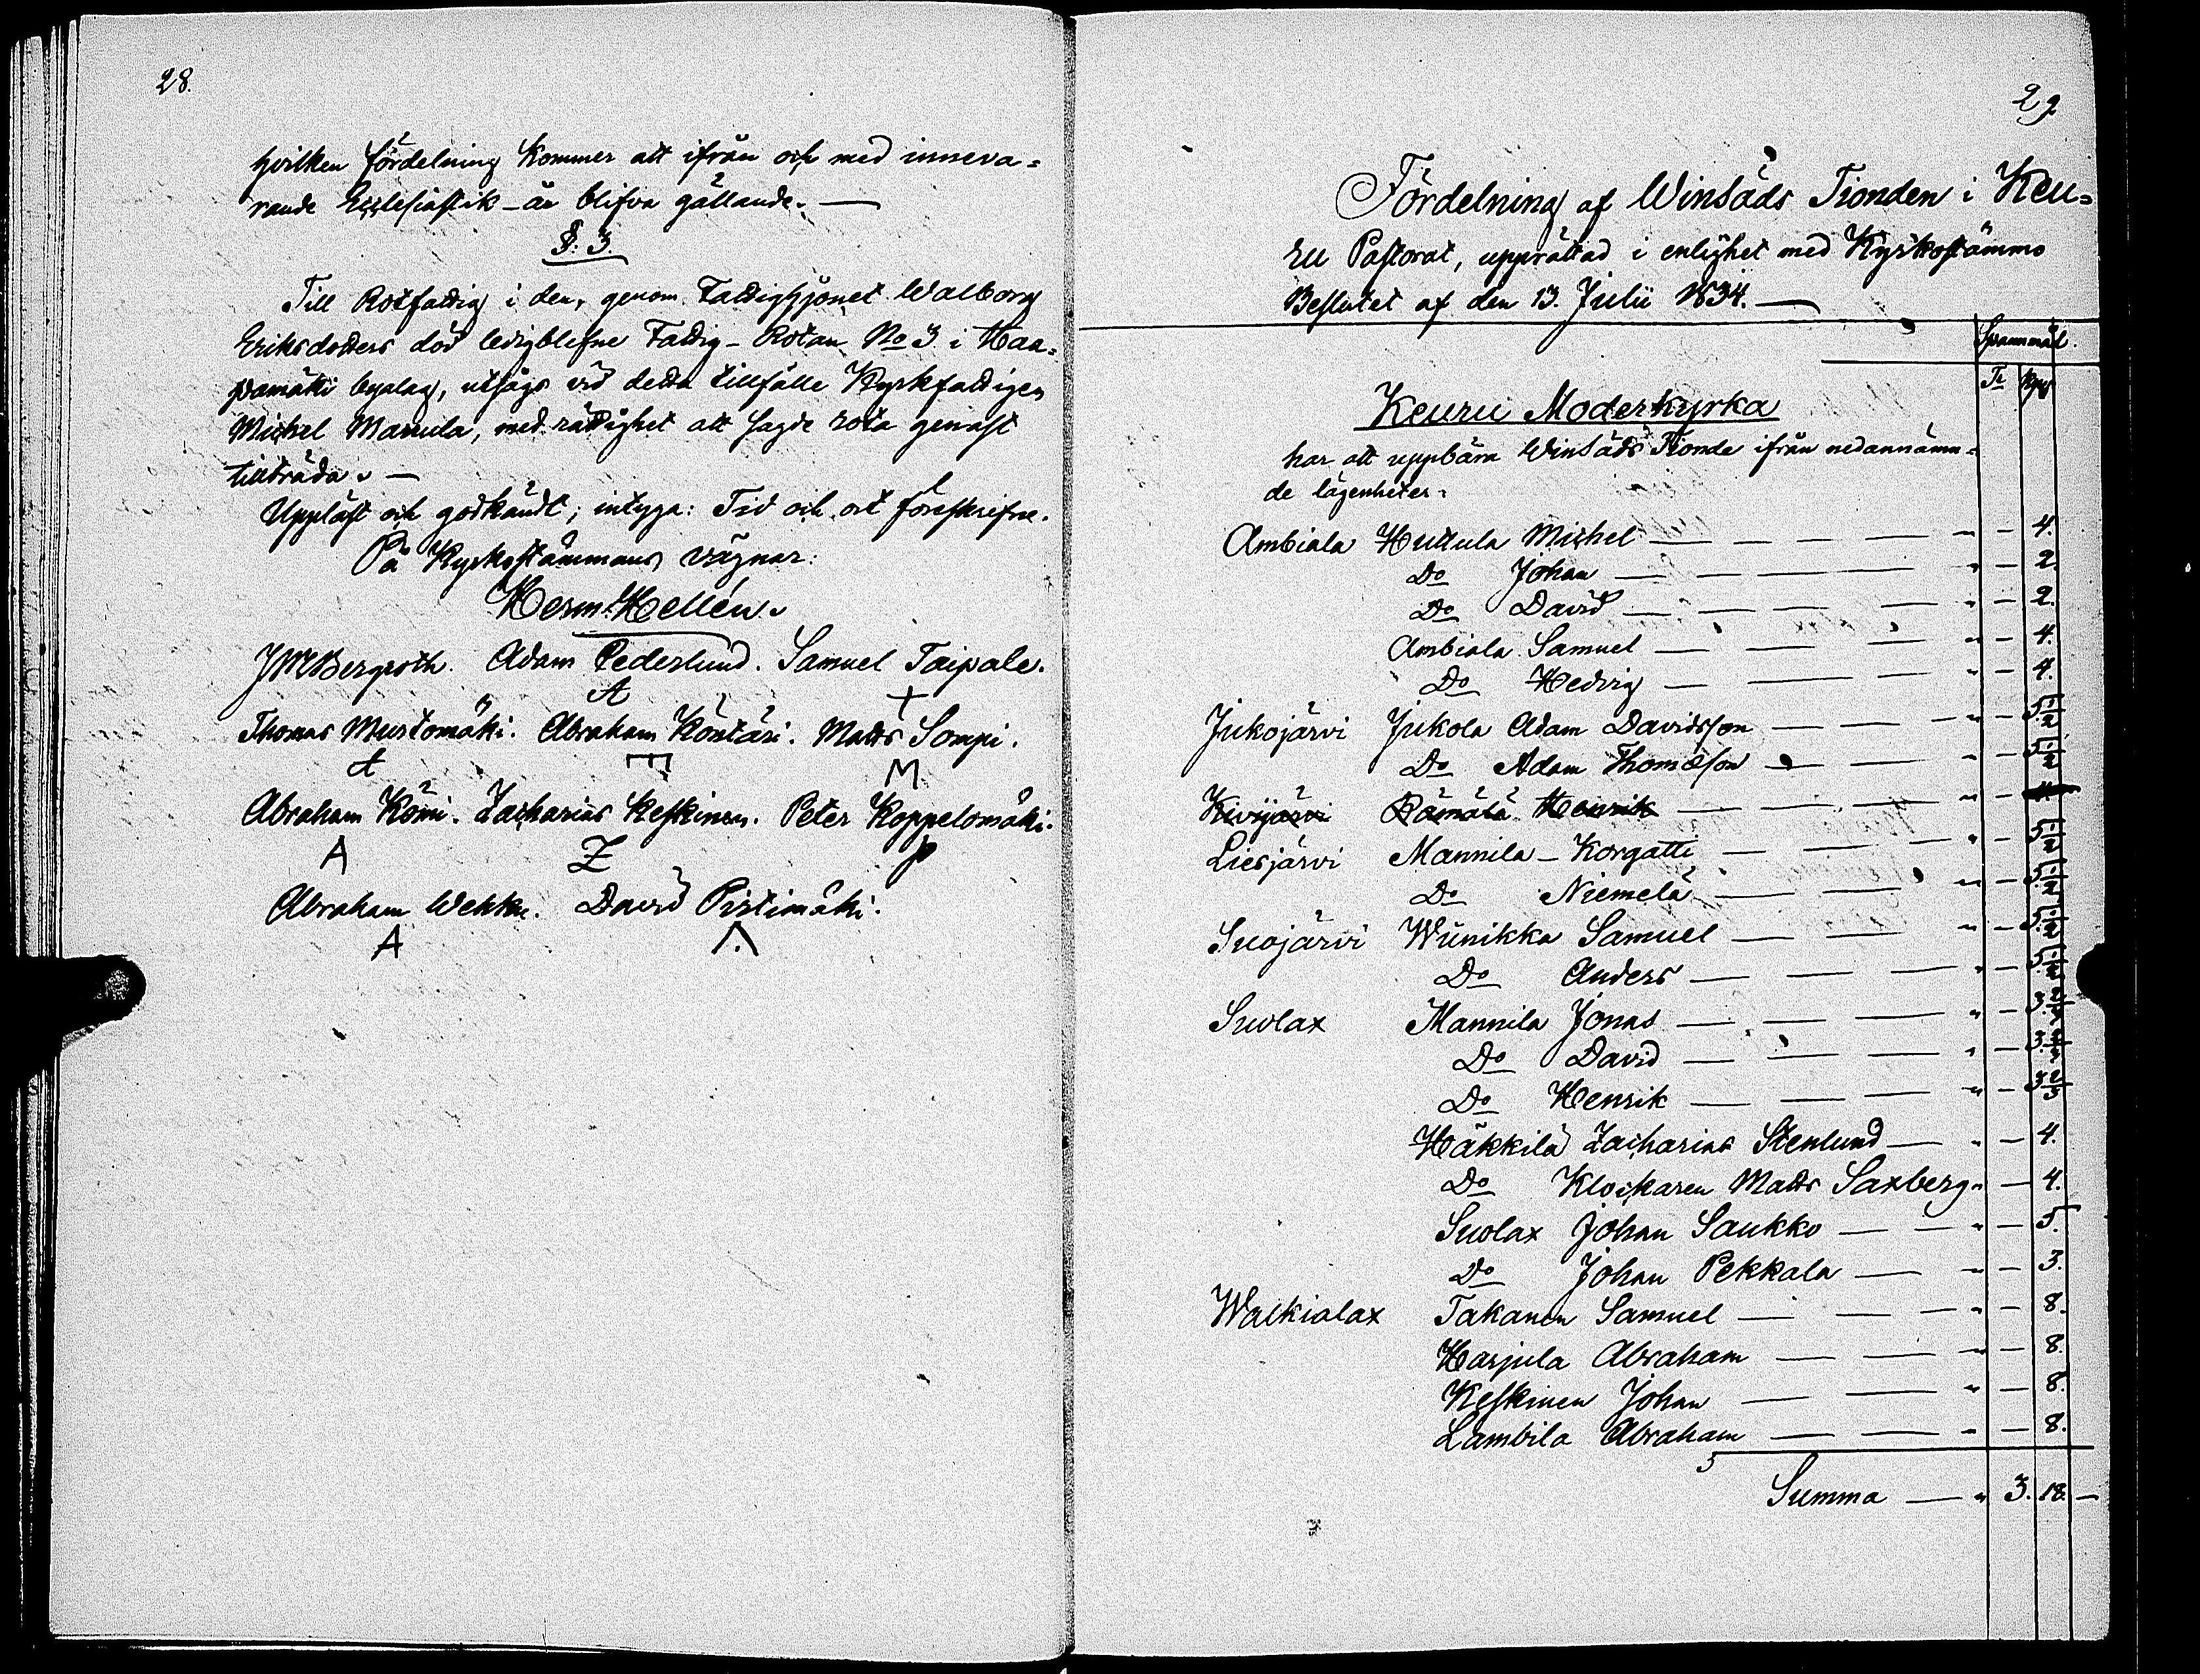 28.
hvilken fördelning kommer att ifrån och med inneva=
rande Ecclesiastik-år blifva gällande. —
§. 3.
Till Rotfattig i den, genom Fattighjonet Walborg
Eriksdotters död ledigblefne Fattig-Rotan No 3 i Haa=
pamäki byalag, utsågs vid detta tillfälle Kyrkfattigen
Michel Mannula, med rättighet att sagde rota genast
tillträda. —
Uppläst och godkändt, intyga: Tid och ort förestkrifne.
På Kyrkostämmans vägnar:
Herm: Hellén.
J M Bergroth. Adam Cederlund. Samuel Taipale.
A +
Thomas Mustomäki. Abraham Köntäri. Matts Sompi.
t M
Abraham Kömi. Zacharias Keskinen. Peter Koppelomäki.
A Z p
Abraham Wekka. David Pistimäki.
A
29
Fördelning af Winsäds Tionden i Keu=
ru Pastorat, upprättad i enlighet med Kyrkostämmo
Beslutet af den 13. Julii 1834. —
Spannmål.
Tr Kpr
Keuru Moderkyrka
har att uppbära Winsäds Tionde ifrån nedannämn=
de lägenheter.
Ambiala Huttula Michel — — — — " — 4.
Do Johan — — — — " — 2.
Do David — — — — " — 2.
Ambiala Samuel — — — " — 4.
Do Hedvig — — — — " — 4.
Jukojärvi Jukola Adam Davidsson — — — " — 5 1/2
Do Adam Thomæson — — — " — 5 1/2
Kivijärvi Rämälä Henrik — — — " — 4
Liesjärvi Mannila-Korgatti — — — " — 5 1/2
Do Niemelä — — — " — 5 1/2
Suojärvi Wiinikka Samuel — — — " — 5 1/2
Do Anders — — — — " — 5 1/2
Suolax Mannila Jonas — — — — " — 3 2/3
Do David — — — — " — 3 2/3
Do Henrik — — — — " — 3 2/3
Häkkilä Zacharias Stenlund — " — 4.
Do Klockaren Matts Saxberg " — 4.
Suolax Johan Saukko — — " — 5.
Do Johan Pekkala — — " — 3.
Walkialax Takanen Samuel — — — " — 8.
Harjula Abraham — — — " — 8.
Keskinen Johan — — — " — 8.
Lambila Abraham — — — " — 8.
Summa — " 3. 18. —